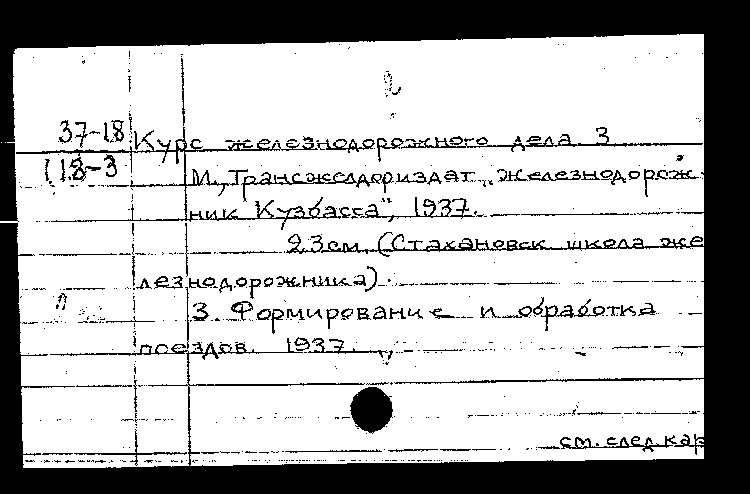 2
37-18 Курс железнодорожного дела. 3
118-3 М., Трансжелдориздат, „Железнодорож-
ник Кузбасса", 1937.
23см. (Стахановск школа же
лезнодорожника).
3. Формирование и обработка
поездов. 1937.
см. след. кар